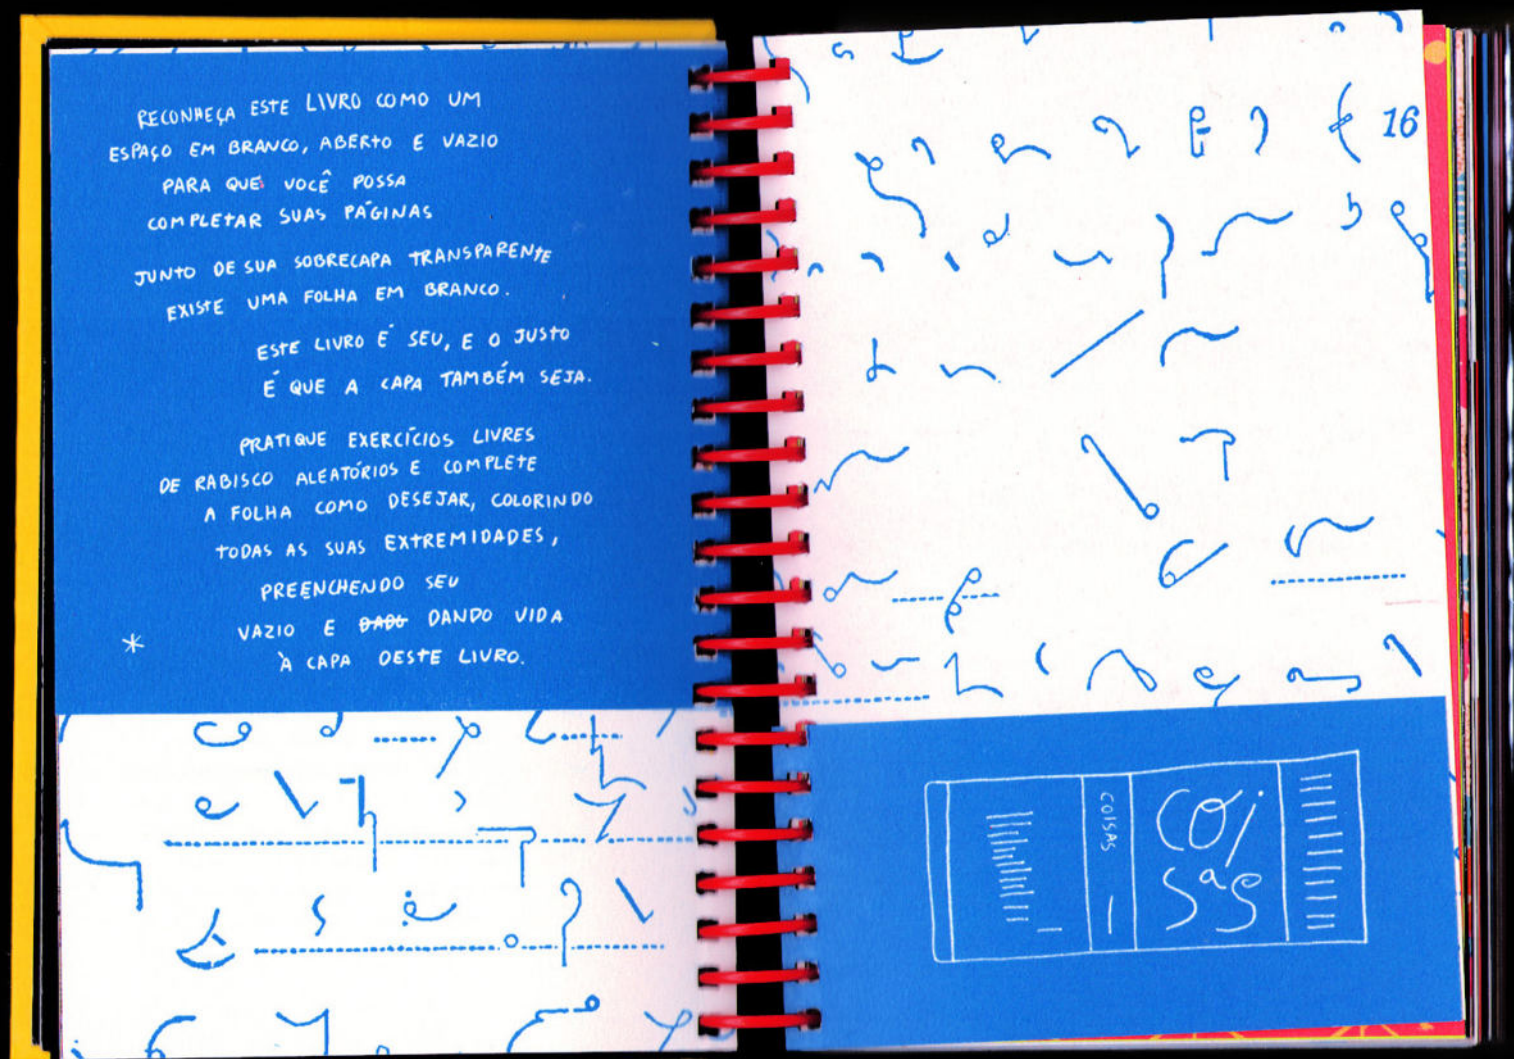 RECONHEÇA ESTE LIVRO COMO UM
ESPAÇO EM BRANCO, ABERTO E VAZIO
PARA QUE VOCÊ POSSA
COMPLETAR SUAS PÁGINAS
JUNTO DE SUA SOBRECAPA TRANSPARENTE
EXISTE UMA FOLHA EM BRANCO.
ESTE LIVRO É SEU, E O JUSTO
É QUE A CAPA TAMBÉM SEJA.
PRATIQUE EXERCÍCIOS LIVRES
DE RABISCO ALEATÓRIOS E COMPLETE
A FOLHA COMO DESEJAR, COLORINDO
TODAS AS SUAS EXTREMIDADES,
PREENCHENDO SEU
VAZIO E DADO DANDO VIDA
* À CAPA DESTE LIVRO.
16
COISAS
COi
SaS